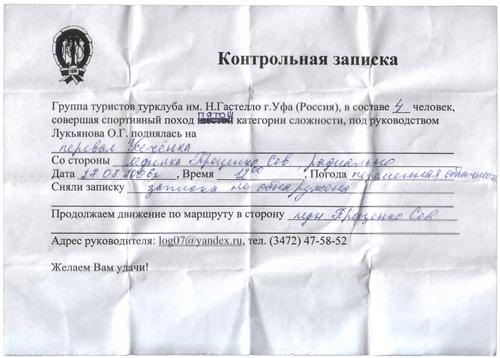 Контрольная записка
Группа туристов турклуба им. Н.Гастелло г.Уфа (Россия), в составе 4 человек,
совершая спортивный поход пятой категории сложности, под руководством
Лукьянова О.Г. поднялась на
перевал
Со стороны ледника Проценко Сев радиально
Дата 27.08.2006г. Время 12 00 . Погода переменная облачность
Сняли записку записка не обнаружена
Продолжаем движение по маршруту в сторону лдн Проценко Сев
Адрес руководителя: log07@yandex.ru, тел. (3472) 47-58-52
Желаем Вам удачи!